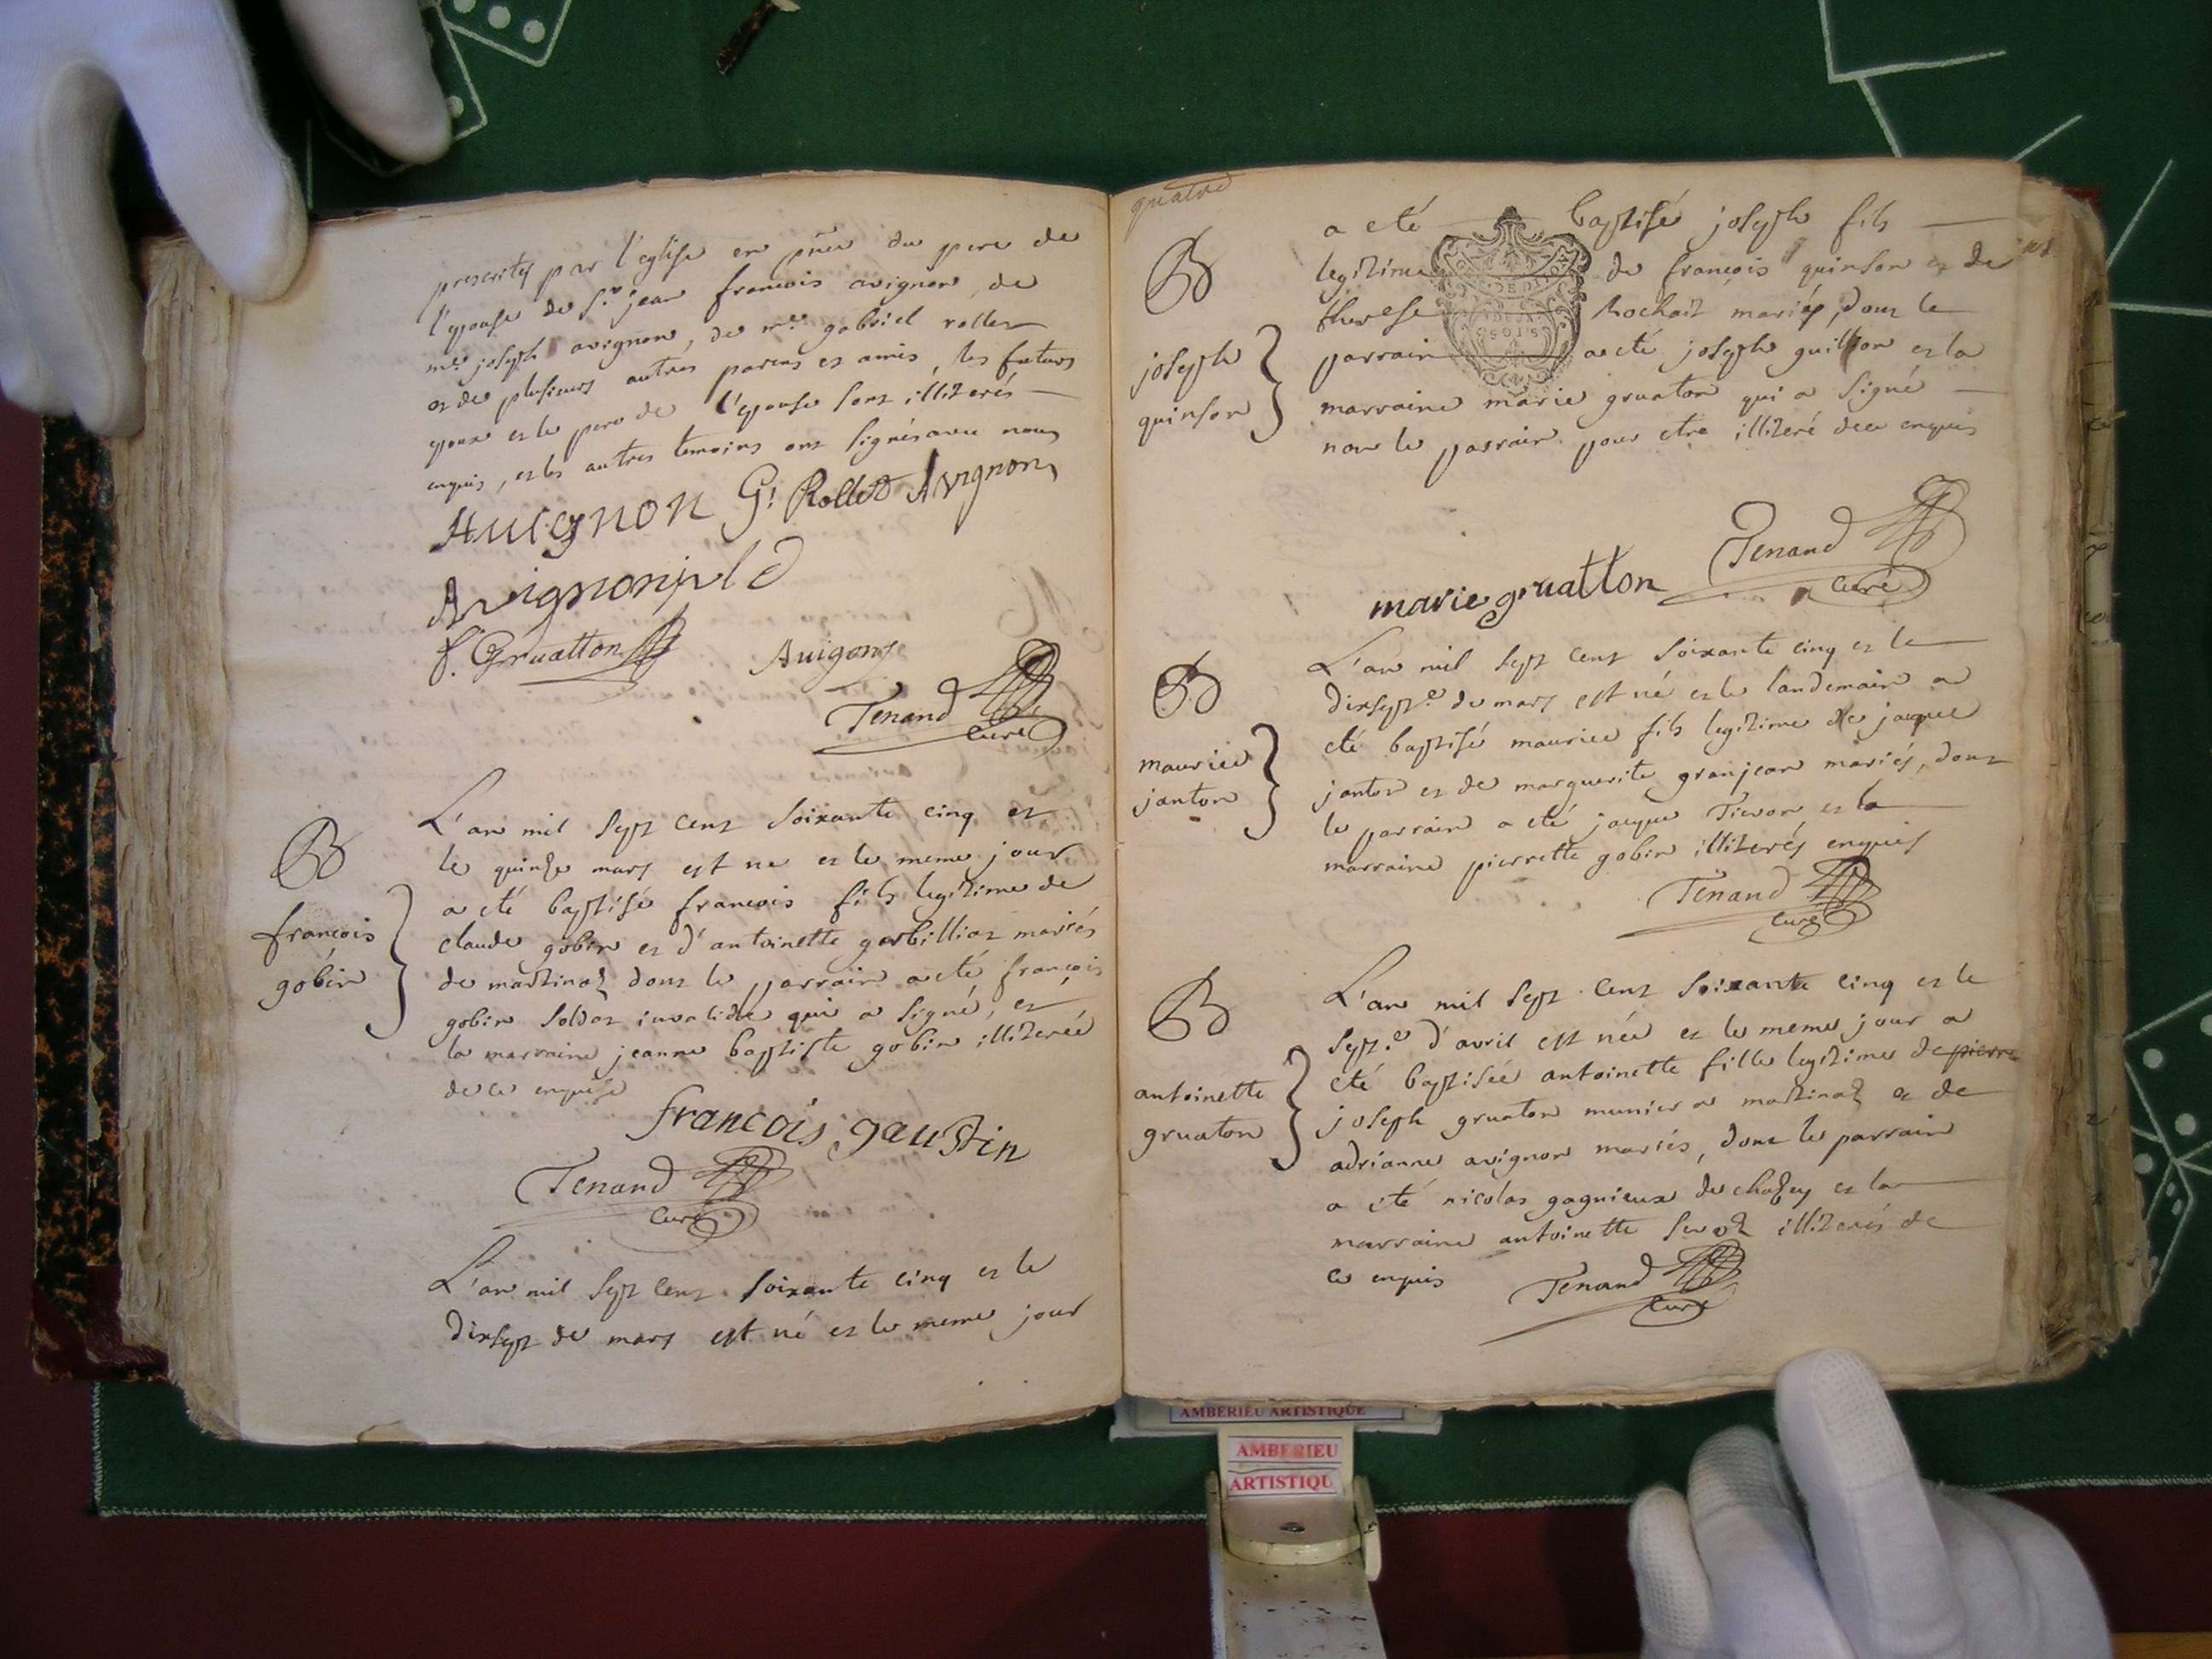 prescrites par l'eglise en pñce du pere de
l'epouse de Sr. jean francois avignon, de
mre. joseph avignon, de mre. gabriel rollet
et de plusieurs autres parens et amis, les futurs
epoux et le pere de l'epouse sont illiterés
enquis, et les autres temoins ont signés avec nous
Auignon G. Rollet Avignon
Avignon
f. Gruatton Auignon
Tenand
curé
B
françois
gobin
L'an mil sept cent soixante cinq et
le quinze mars est ne et le meme jour
a eté baptisé francois fils legitime de
claude gobin et d'antoinette gorbilliat mariés
de martinaz dont le parrain a eté françois
gobin soldat invalide qui a signé, et
la marraine jeanne baptiste gobin illiterée
de ce enquise
francois gaustin
Tenand
curé
L'an mil sept cent soixante cinq et le
dixsept de mars est né et le meme jour
quatre
B
joseph
quinson
a eté baptisé joseph fils
legitime de francois quinson et de
therese Rochait mariés, dont le
parrain a eté joseph guillon et la
marraine marie gruaton qui a signé
non le parrain pour etre illiteré de ce enquis
Tenand
curé
marie gruatton
B
maurice
janton
L'an mil sept cent soixante cinq et le
dixsept.e de mars est né et le landemain a
eté baptisé maurice fils legitime de jacque
janton et de marguerite granjean mariés, dont
le parrain a eté jacque Tievon et la
marraine pierrette gobin illiterés enquis
Tenand
curé
B
antoinette
gruaton
L'an mil sept cent soixante cinq et le
sept.e d'avril est née et le meme jour a
eté baptisée antoinette fille legitime de pierre
joseph gruaton munier a martinaz et de
adrianne avignon mariés, dont le parrain
a eté nicolas gagnieux de chazey et la
marraine antoinette illiterés de
ce enquis
Tenand
curé
AMBERIEU ARTISTIQUE
AMBERIEU
ARTISTIQU